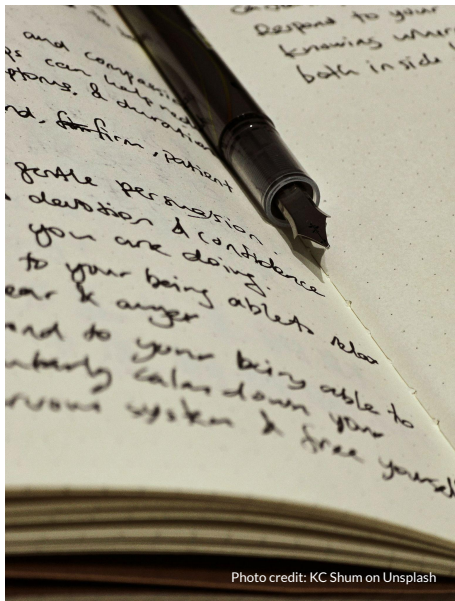 and compassi
can help reduce
ptoms, & duration
nd, firm, patient
gentle persuasion.
devotion & confidence
you are doing.
to your being able to relax
ear & anger
and to your being able to
calm down your
rvous system & free yoursel
Respond to your
knowing where
both inside
Photo credit: KC Shum on Unsplash